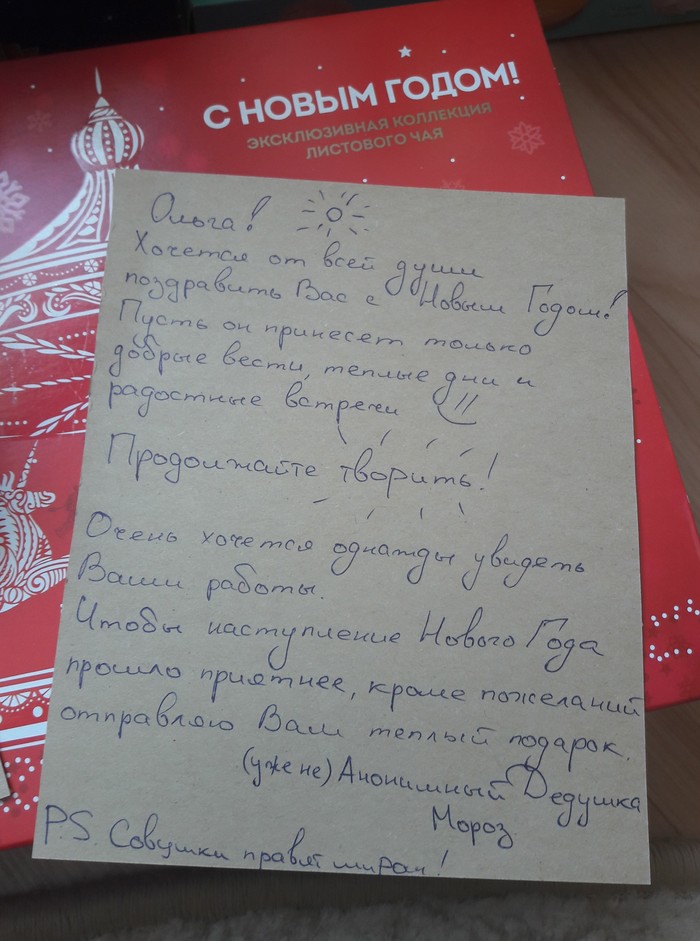 С НОВЫМ ГОДОМ!
ЭКСКЛЮЗИВНАЯ КОЛЛЕКЦИЯ
ЛИСТОВОГО ЧАЯ
Ольга!
Хочется от всей души
поздравить Вас с Новым Годом!
Пусть он принесет только
добрые вести, теплые дни и
радостные встречи
Продолжайте творить!
Очень хочется однажды увидеть
Ваши работы.
Чтобы наступление Нового Года
прошло приятнее, кроме пожеланий
отправляю Вам теплый подарок.
(уже не) Анонимный Дедушка
Мороз
P.S. Совушки правят миром!